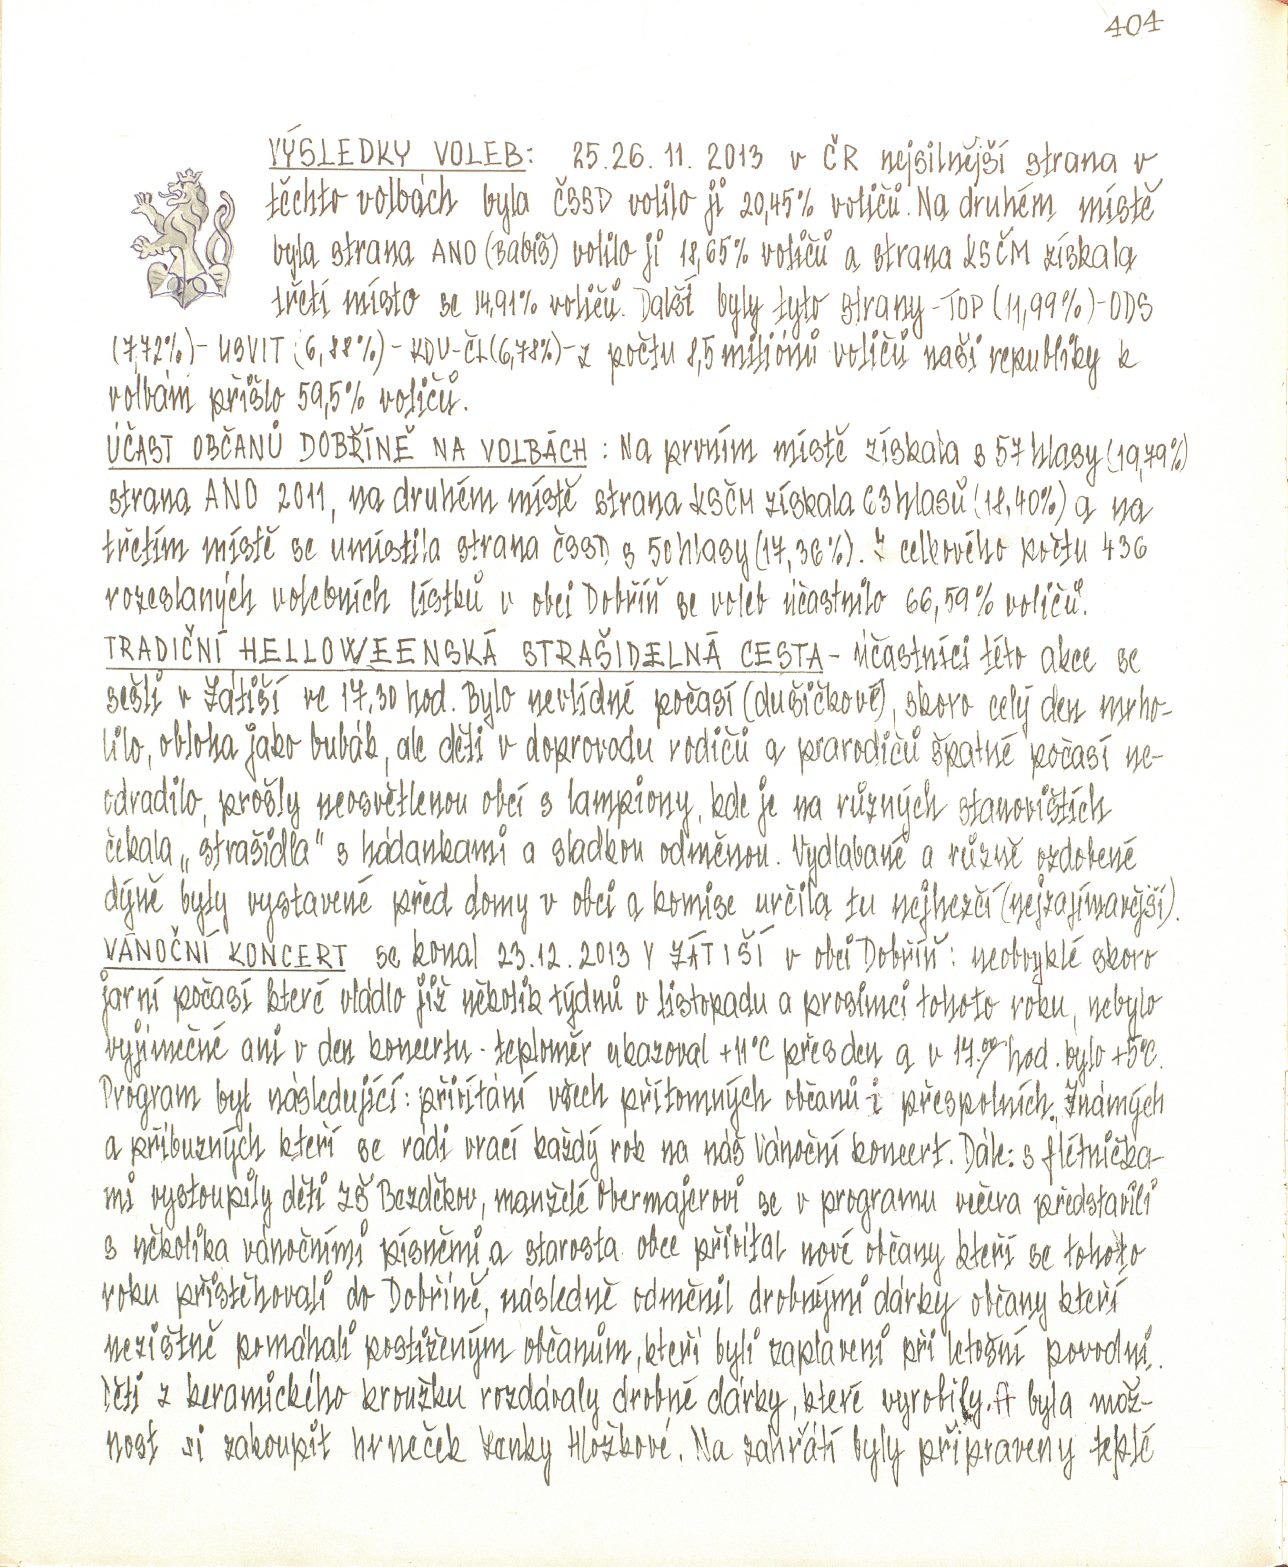 404
VÝSLEDKY VOLEB: 25.26. 11. 2013 v ČR nejsilnější strana v
těchto volbách byla ČSSD volilo ji 20,45% voličů. Na druhém místě
byla strana ANO (Babiš) volilo ji 18,65% voličů a strana KSČM získala
třetí místo se 14,91% voličů. Další byly tyto strany - TOP (11,99%) - ODS
(7,72%) - USVIT (6,88%) - KDU-ČL (6,78%) - z počtu 8,5 miliónů voličů naší republiky k
volbám přišlo 59,5% voličů.
ÚČAST OBČANŮ DOBŘÍNĚ NA VOLBÁCH : Na prvním místě získala s 57 hlasy (19,79%)
strana ANO 2011, na druhém místě strana KSČM získala 63 hlasů (18,40%) a na
třetím místě se umístila strana ČSSD s 50 hlasy (17,36%). Z celkového počtu 436
rozeslaných volebních lístků v obci Dobříň se voleb účastnilo 66,59% voličů.
TRADIČNÍ HELLOWEENSKÁ STRAŠIDELNÁ CESTA - účastníci této akce se
sešli v Zátiší ve 17,30 hod. Bylo nevlídné počasí (dušičkové), skoro celý den mrho-
lilo, obloha jako bubák, ale děti v doprovodu rodičů a prarodičů špatné počasí ne-
odradilo, prošly neosvětlenou obcí s lampiony, kde je na různých stanovištích
čekala „strašidla“ s hádankami a sladkou odměnou. Vydlabané a různě ozdobené
dýně byly vystavené před domy v obci a komise určila tu nejhezčí (nejzajímavější).
VÁNOČNÍ KONCERT se konal 23.12.2013 V ZÁTIŠÍ v obci Dobříň: neobvyklé skoro
jarní počasí které vládlo již několik týdnů v listopadu a prosinci tohoto roku, nebylo
vyjímečné ani v den koncertu - teploměr ukazoval +11°C přes den a v 17.00 hod. bylo +5°C.
Program byl následující: přivítání všech přítomných občanů i přespolních, známých
a příbuzných kteří se rádi vrací každý rok na náš Vánoční koncert. Dále: s flétnička-
mi vystoupily děti ZŠ Bezděkov, manželé Obermajerovi se v programu večera představili
s několika vánočními písněmi a starosta obce přivítal nové občany kteří se tohoto
roku přistěhovali do Dobříně, následně odměnil drobnými dárky občany kteří
nezištně pomáhali postiženým občanům, kteří byli zaplaveni při letošní povodni.
Děti z keramického kroužku rozdávaly drobné dárky, které vyrobily. A byla mož-
nost si zakoupit hrneček Lenky Hložkové. Na zahřátí byly připraveny teplé